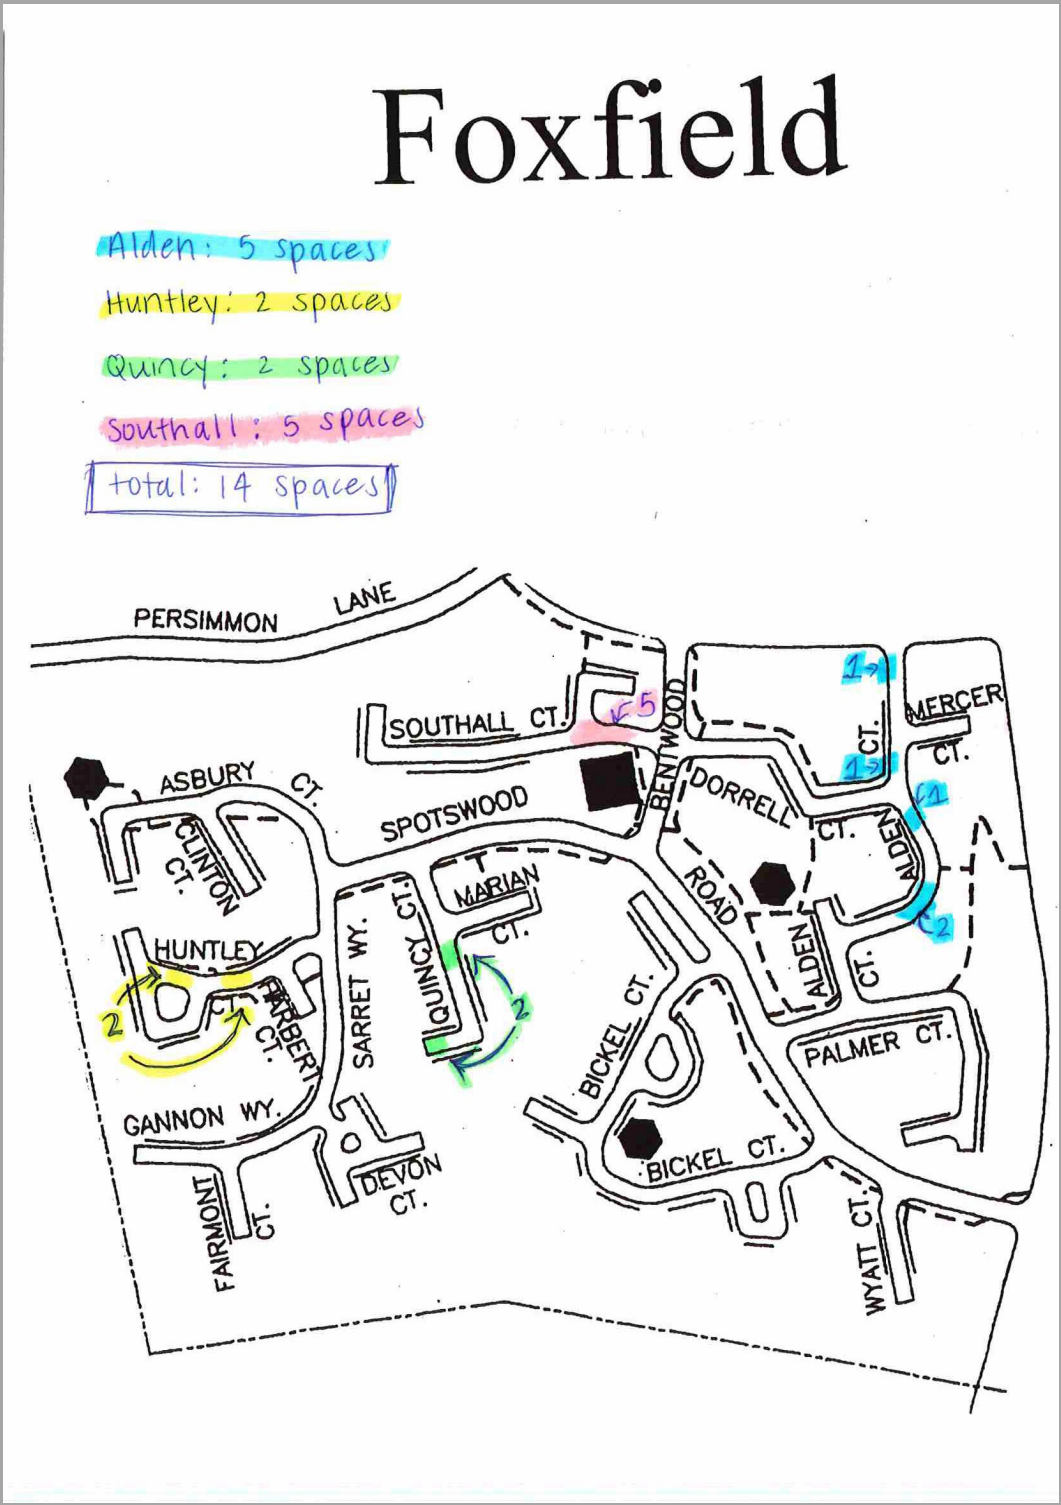 Foxfield
Alden: 5 spaces
Huntley: 2 spaces
Quincy: 2 spaces
Southall: 5 spaces
total: 14 spaces
PERSIMMON LANE
SOUTHALL CT.
5
BENTWOOD
ROAD
1
MERCER
CT.
CT.
1
1
ASBURY CT.
SPOTSWOOD
DORRELL
CT.
ALDEN
CLINTON
CT.
MARIAN
CT.
2
HUNTLEY
CT.
2
HARBERT
CT.
SARRET WY.
QUINCY CT.
2
ALDEN
CT.
BICKEL CT.
PALMER CT.
GANNON WY.
BICKEL CT.
DEVON
CT.
FAIRMONT
CT.
WYATT CT.